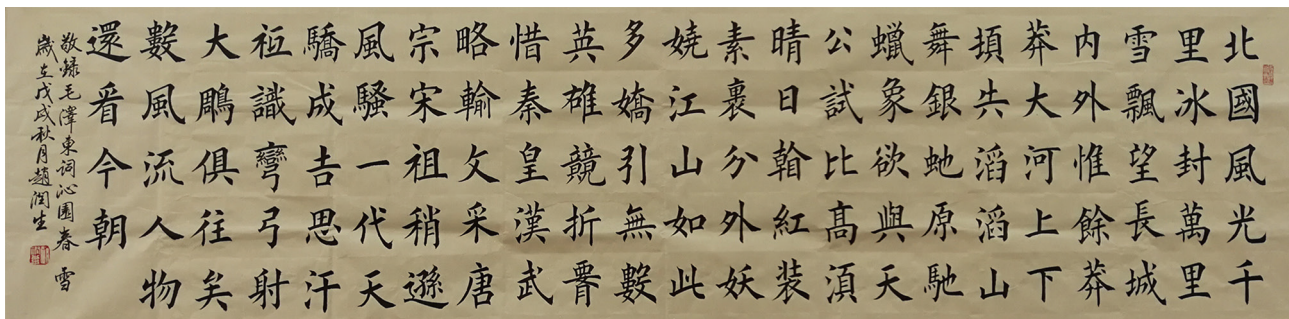 北國風光千
里冰封萬里
雪飄望長城
内外惟餘莽
莽大河上下
頓失滔滔山
舞銀虵原馳
蠟象欲與天
公試比髙湏
晴日看紅装
素裹分外妖
嬈江山如此
多嬌引無數
英雄競折腰
惜秦皇漢武
略輸文采唐
宗宋祖稍遜
風騷一代天
驕成吉思汗
衹識彎弓射
大鵰俱往矣
數風流人物
還看今朝
敬録毛澤東詞沁園春 雪
歲在戊戌秋月趙潤生